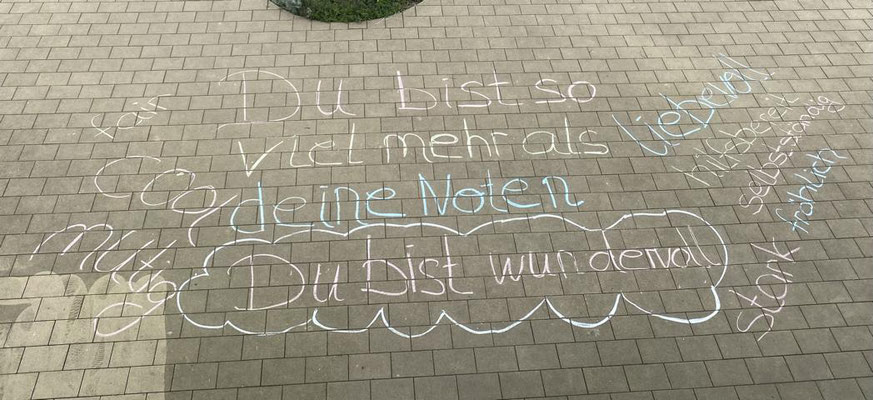 fair
cool
mutig
Du bist so
viel mehr als
deine Noten
Du bist wundervoll
liebevoll
hilfsbereit
selbstständig
fröhlich
stark